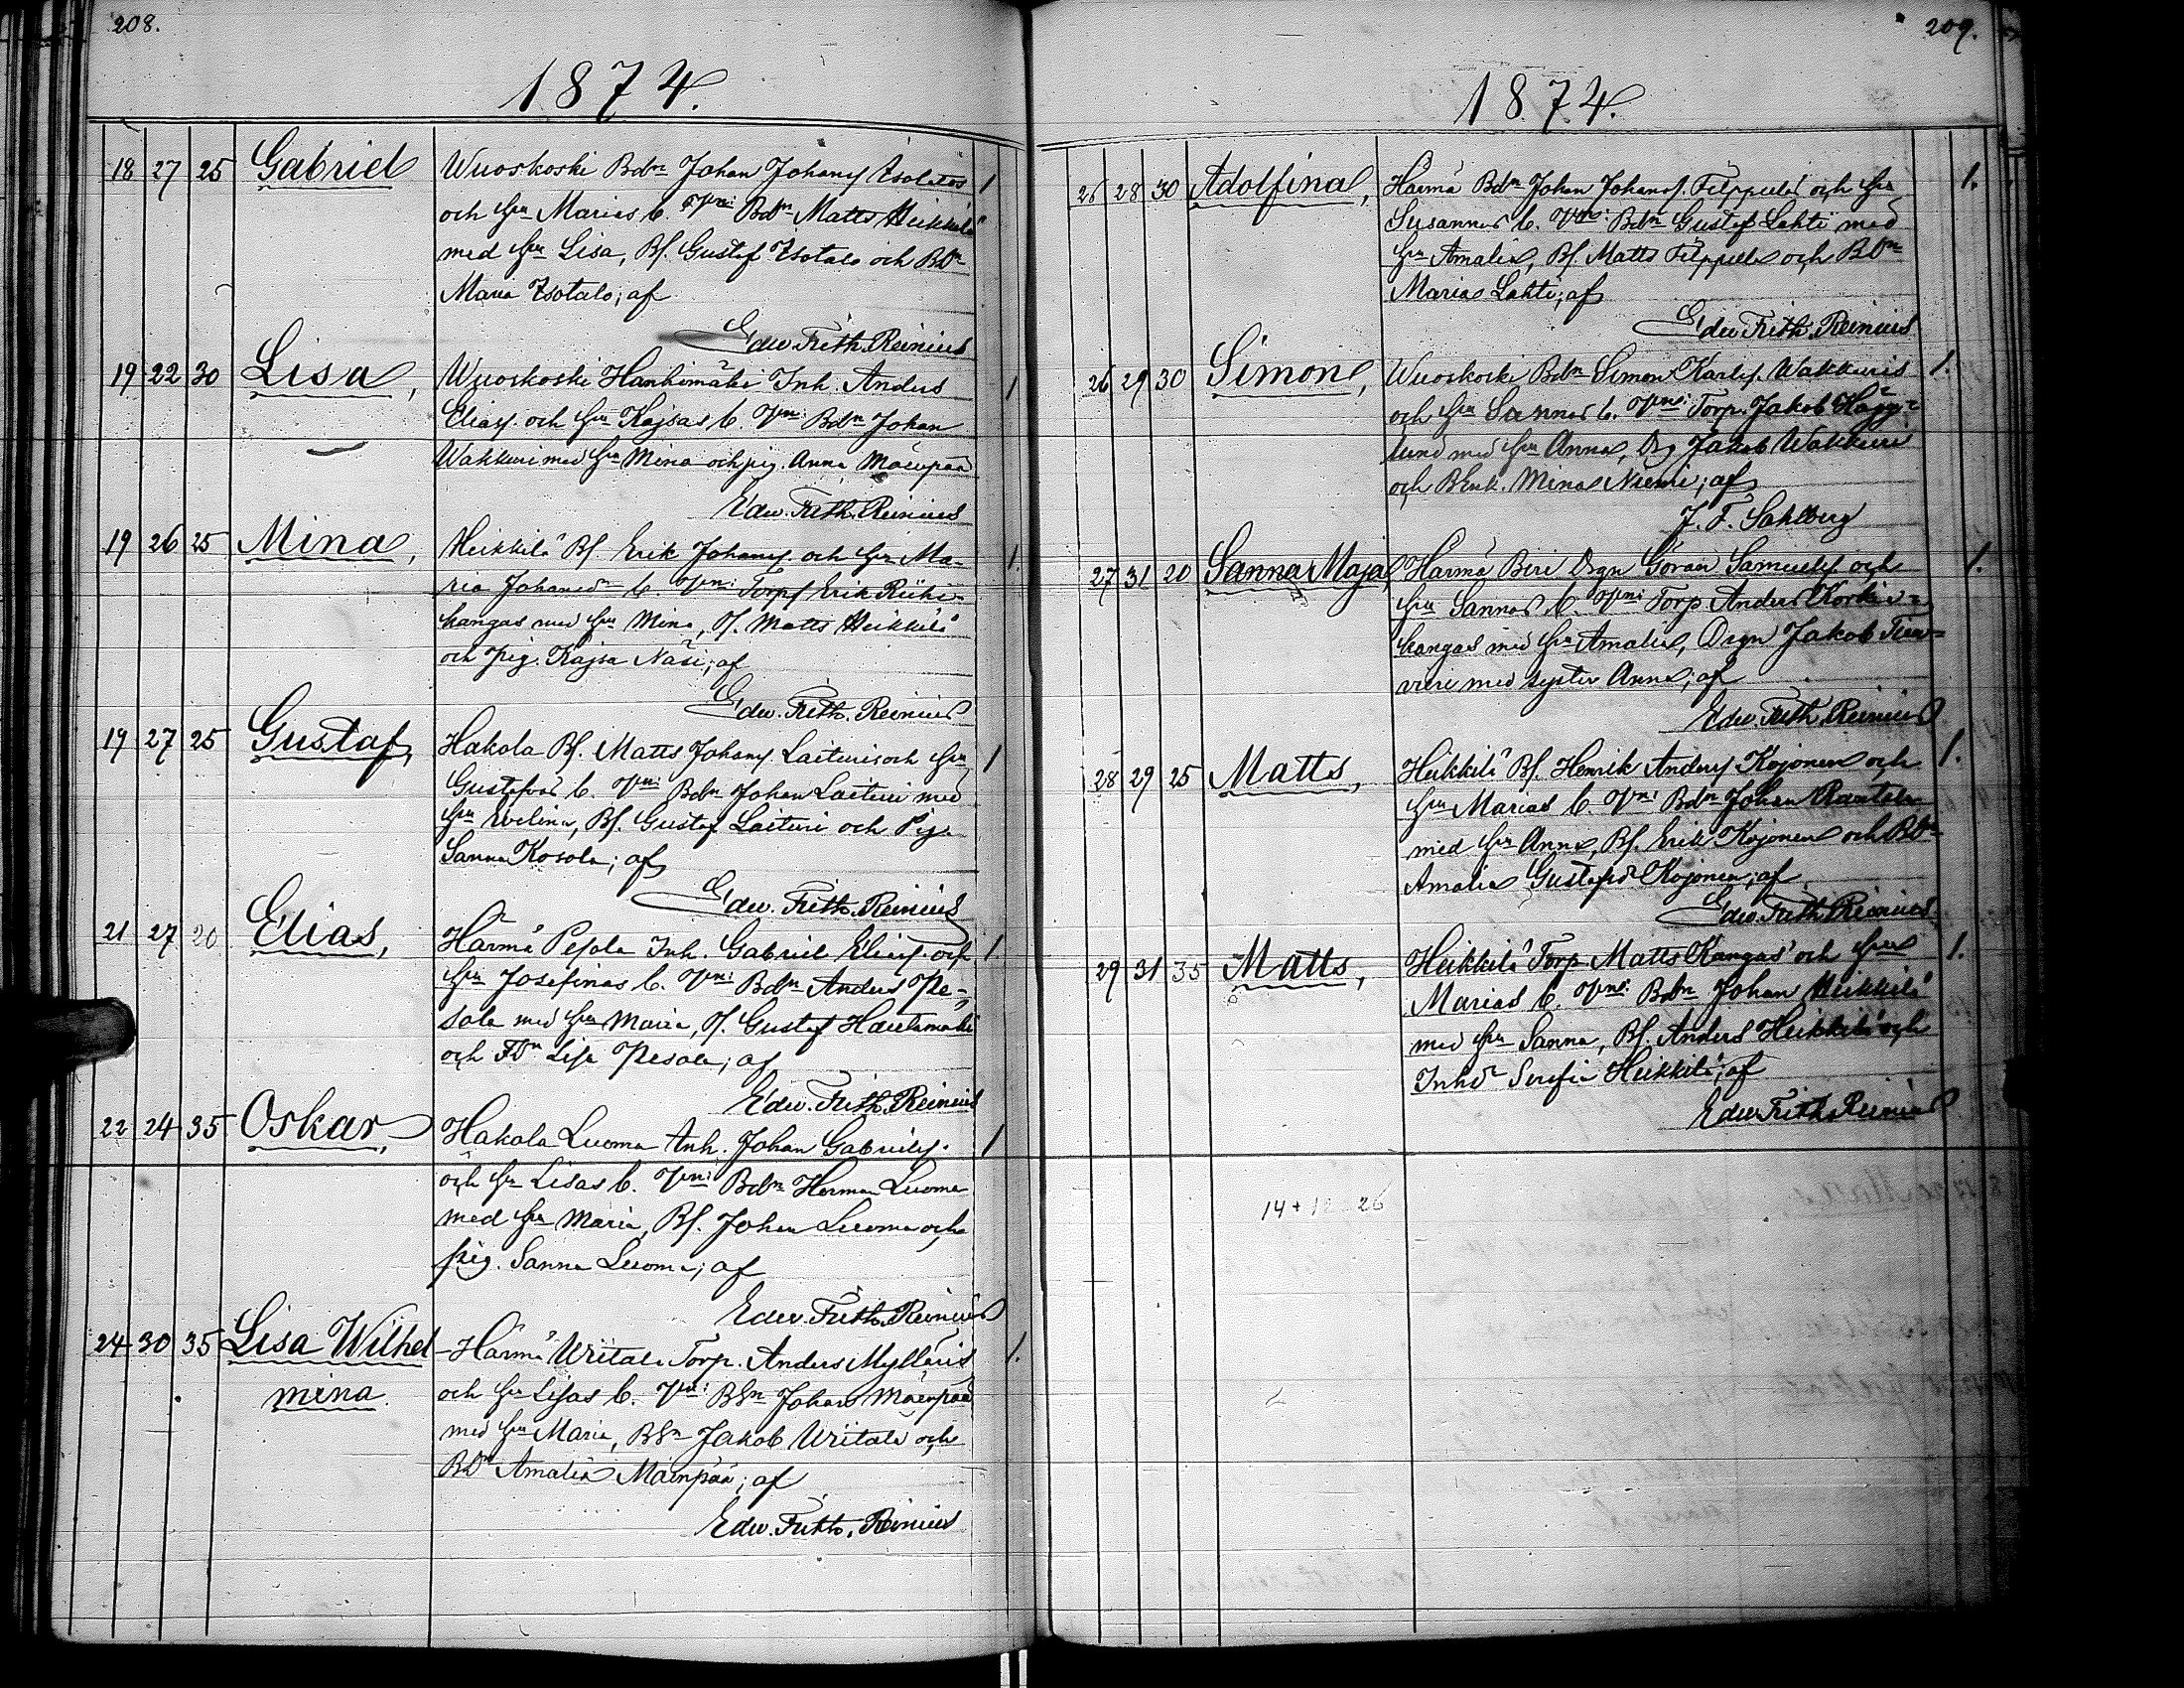 208.
1874.
18 27 25 Gabriel Wuoskoski Bdn Johan Johans Isotalos 1
och hu Marias b. Vni Bdn Matts Heikkilä
med hu Lisa, Bs. Gustaf Isotalo och BDr
Maria Isotalo; af
Edw. Frith. Reinius
19 22 30 Lisa, Wuoskoski Hanhimäki Inh. Anders 1
Elias. och hu Kajsas b. Vni Bdn Johan
Wakkuri med hu Mina och pig. Anna Mäenpää
Edw. Frith. Reinius
19 26 25 Mina, Heikkilä Bs Erik Johans. och hu Ma- 1.
ria Johansdr b. Vni Torps Erik Riihi-
kangas med hu Mina, Matts Heikkilä
och pig. Kajsa Näsi; af
Edw. Frith. Reinius
19 27 25 Gustaf, Hakola Bs. Matts Johans. Laituris och hu 1
Gustafvas b. Vni Bdn Johan Laituri med
hu Evelina, Bs. Gustaf Laituri och Pig.
Sanna Kosola; af
Edw. Frith. Reinius
21 27 20 Elias, Härmä Pesola Inh. Gabriel Elias. och 1.
hu Josefinas b. Vni Bdn Anders Pe-
sola med hu Maria, Gustaf Hautamäki
och Lisa Pesola; af
Edw. Frith. Reinius
22 24 35 Oskar, Hakola Luoma Inh. Johan Gabriels. 1
och hu Lisas b. Vni Bdn Herman Luoma
med hu Maria, Bs. Johan Luoma och
pig. Sanna Luoma; af
Edw. Frith. Reinius
24 30 35 Lisa Wilhel- Härmä Wiitala Torp. Anders Mylläris 1.
mina. och hu Lisas b. Vni BSn Johan Mäenpää
med hu Maria, BSn Jakob Wiitala och
BDr Amalia Mäenpää; af
Edw. Frith. Reinius
209.
1874.
26 28 30 Adolfina, Härmä Bdn Johan Johans. Filppulas och hu 1.
Susannas b. Vni Bdn Gustaf Lahti med
hu Amalia, Bs. Matts Filppula och BDr
Maria Lahti; af
Edw. Frith. Reinius
26 29 30 Simon, Wuoskoski Bdn Simon Karls. Wakkuris 1.
och hu Sannas b. Vni Torp. Jakob Hägg-
lund med hu Anna, Drg Jakob Wakkuri
och BEnk. Mina Niemi; af
J. F. Sahlberg
27 31 20 Sanna Maja, Härmä Biri Drgn Göran Samuels och 1.
hu Sannas b. Vni Torp Anders Korkia-
kangas med hu Amalia, Drgn Jakob
med syster Anna; af
Edw. Frith. Reinius
28 29 25 Matts, Heikkilä Bs. Henrik Anders Kojonen och 1.
hu Marias b. Vni Bdn Johan Rautala
med hu Anna, Bs. Erik Kojonen och BDr
Amalia Gustafsdr Kojonen; af
Edw. Frith. Reinius
29 31 35 Matts, Heikkilä Torp Matts Kangas och hu 1.
Marias b. Vni Bdn Johan Heikkilä
med hu Sanna, Bs. Anders Heikkilä och
Inhdr Serafia Heikkilä; af
Edw. Frith. Reinius
14 + 12 = 26